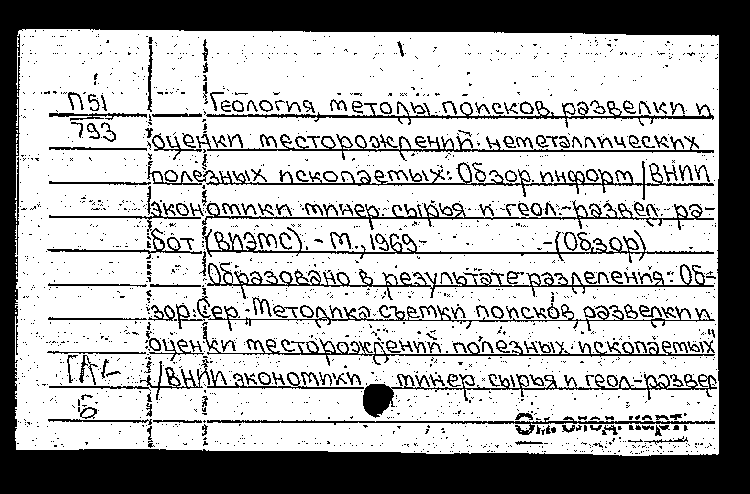 П51
793
Геология, методы поисков, разведки и
оценки месторождений неметаллических
полезных ископаемых: Обзор. информ. /ВНИИ
экономики минер. сырья и геол.-развед. ра-
бот (ВИЭМС). - М., 1969- -(Обзор)
Образовано в результате разделения: Об-
зор. Сер.: Методика съемки, поисков, разведки и
оценки месторождений полезных ископаемых
/ВНИИ экономики минер. сырья и геол-развед
Б
См. след. карт.